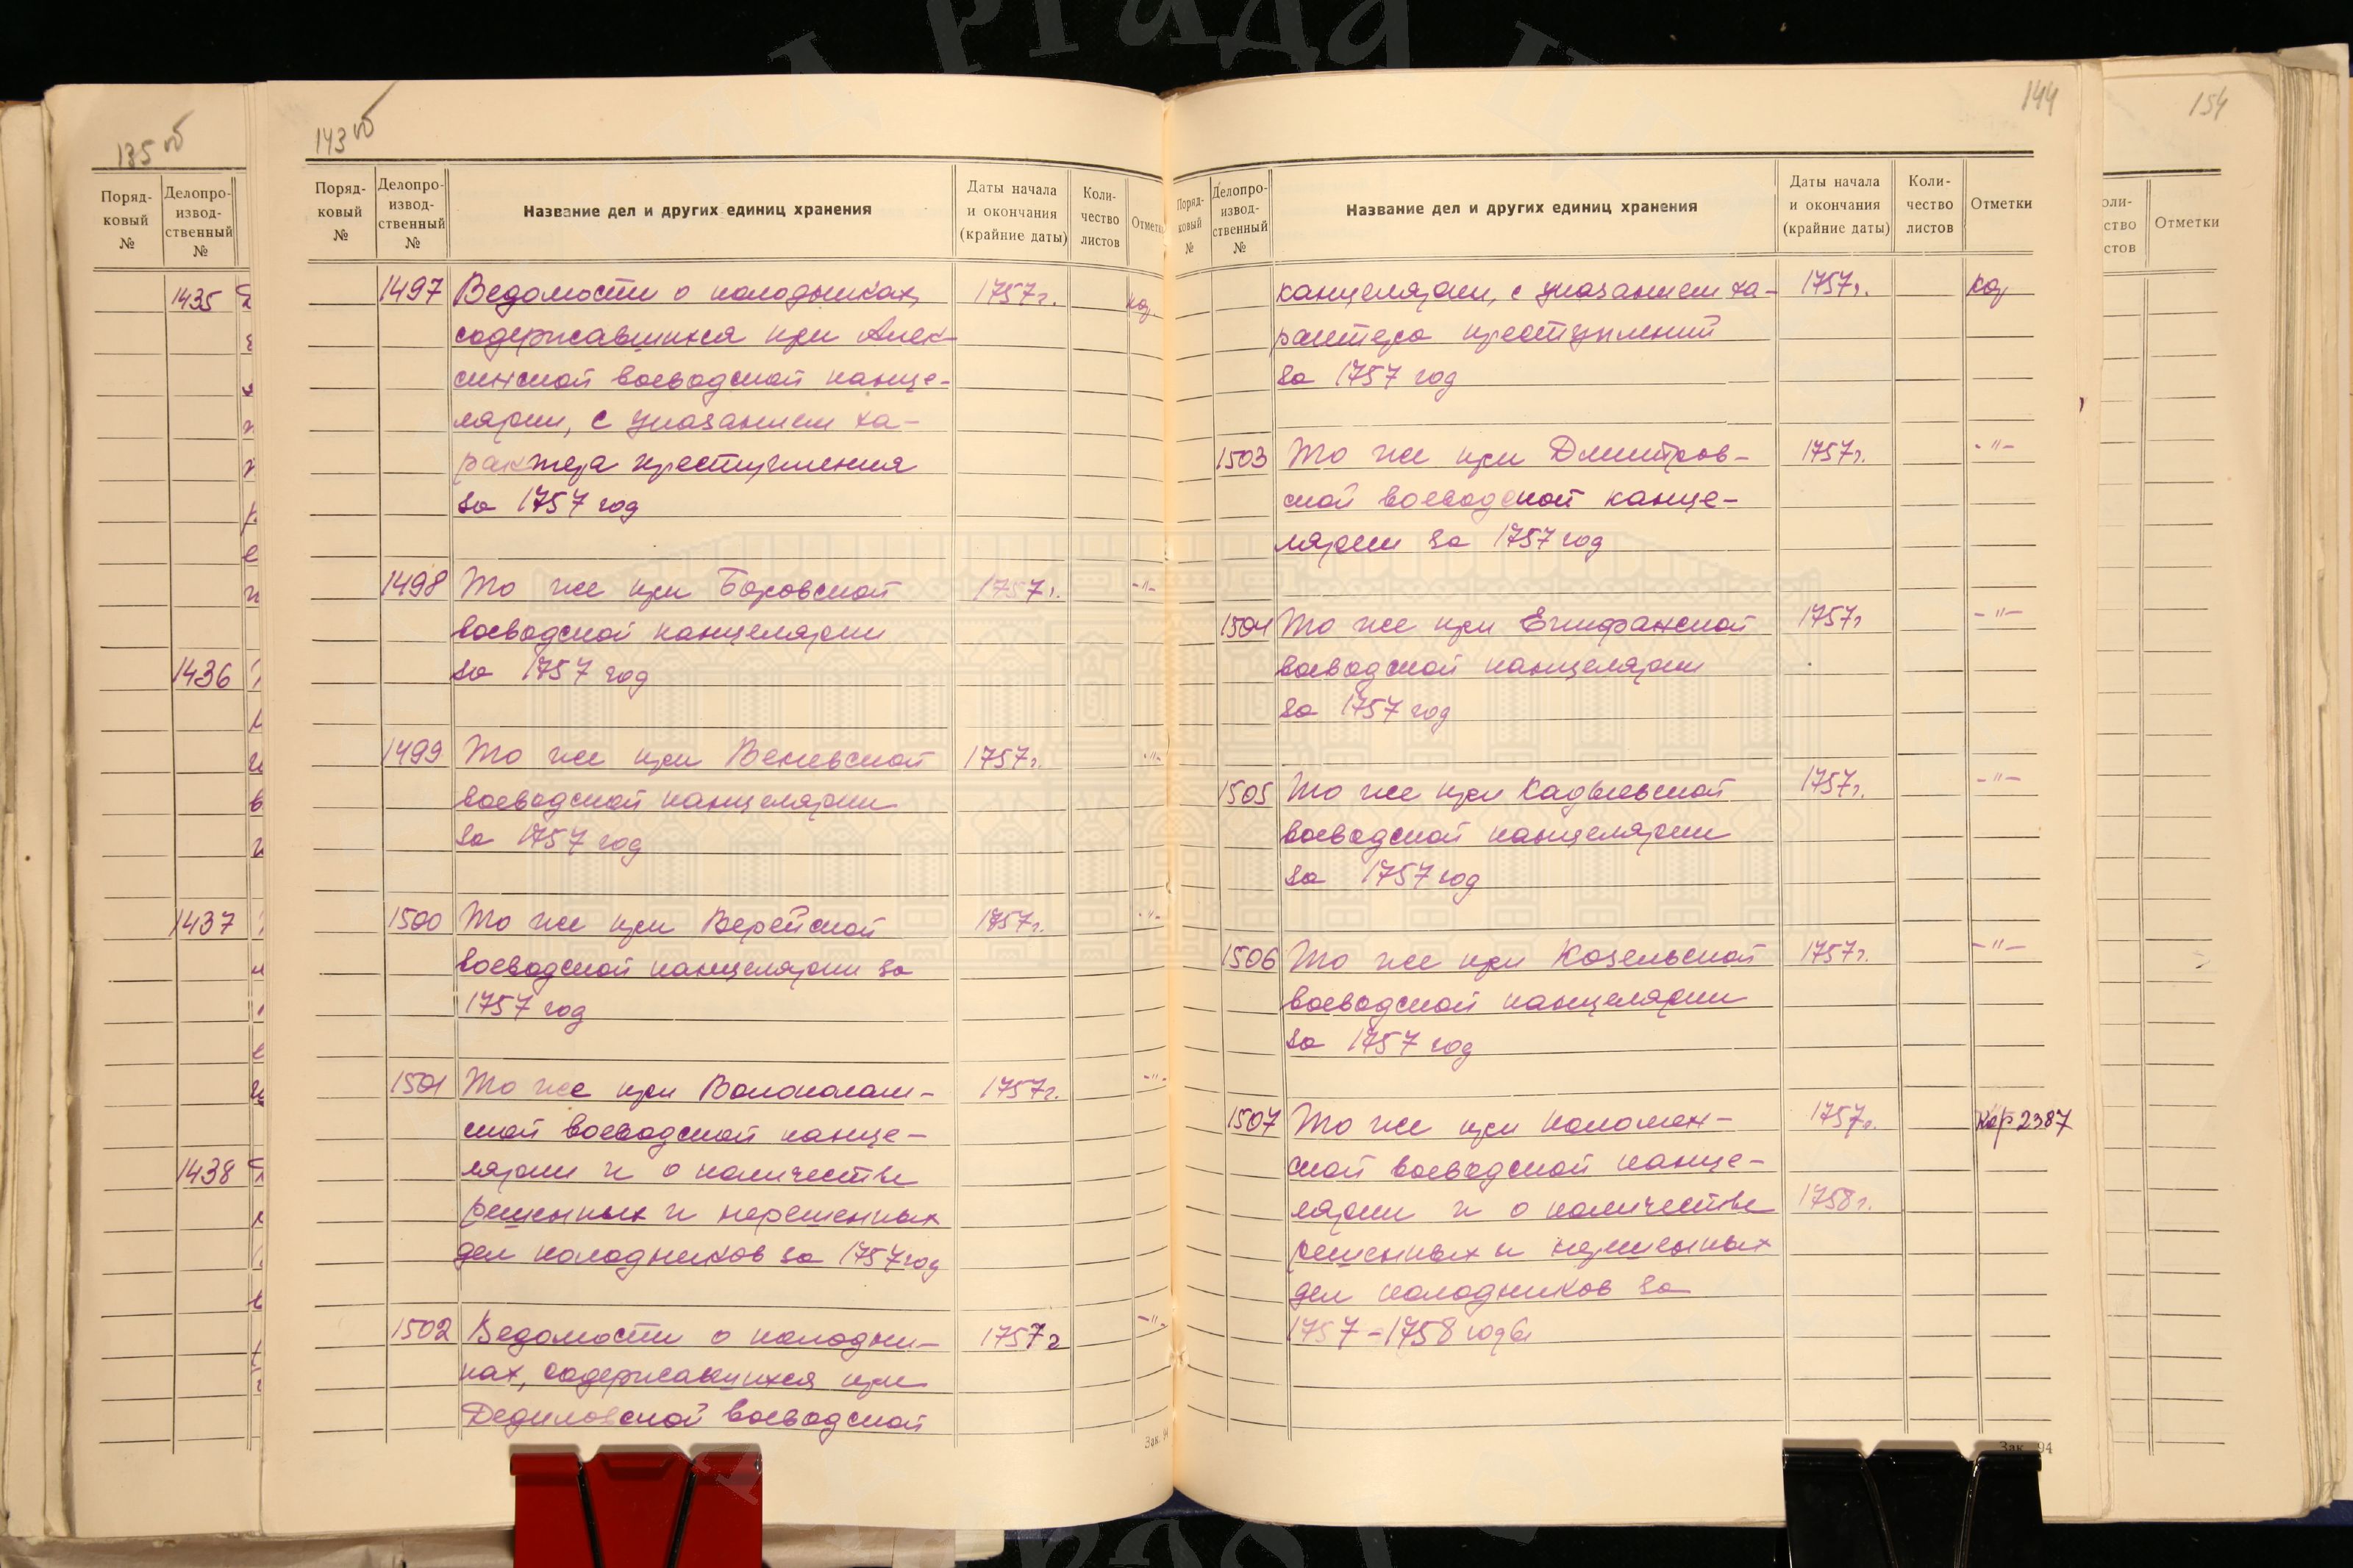 135 об
Поряд-
ковый
№
Делопро-
извод-
ственный
№
1435
1436
1437
1438
143 об
Поряд-
ковый
№
Делопро-
извод-
ственный
№
Название дел и других единиц хранения
Даты начала
и окончания
(крайние даты)
Коли-
чество
листов
Отметки
1497 Ведомости о колодниках, 1757 г.
содержавшихся при Алек-
синской воеводской канце-
лярии, с указанием ха-
рактера преступления
за 1757 год
1498 То же при Боровской 1757 г. -"-
воеводской канцелярии
за 1757 год
1499 То же при Веневской 1757 г. -"-
воеводской канцелярии
за 1757 год
1500 То же при Верейской 1757 г. -"-
воеводской канцелярии за
1757 год
1501 То же при Волоколам- 1757 г. -"-
ской воеводской канце-
лярии и о количестве
решенных и нерешенных
дел колодников за 1757 год
1502 Ведомости о колодни- 1757 г -"-
ках, содержавшихся при
Дедиловской воеводской
Зак. 94
144
Поряд-
ковый
№
Делопро-
извод-
ственный
№
Название дел и других единиц хранения
Даты начала
и окончания
(крайние даты)
Коли-
чество
листов
Отметки
канцелярии, с указанием ха- 1757 г.
рактера преступлений
за 1757 год
1503 То же при Дмитров- 1757 г. -"-
ской воеводской канце-
лярии за 1757 год
1504 То же при Епифанской 1757 г -"-
воеводской канцелярии
за 1757 год
1505 То же при Кадыевской 1757 г. -"-
воеводской канцелярии
за 1757 год
1506 То же при Козельской 1757 г. -"-
воеводской канцелярии
за 1757 год
1507 То же при Коломен- 1757 г. Кор 2387
ской воеводской канце-
лярии и о количестве 1758 г.
решенных и нерешенных
дел колодников за
1757-1758 годы
Зак. 94
154
Отметки